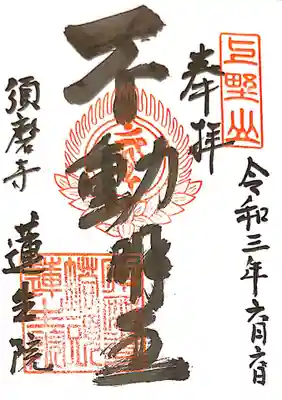 上野山
奉拝
令和三年六月六日
不動明王
須磨寺
蓮生院